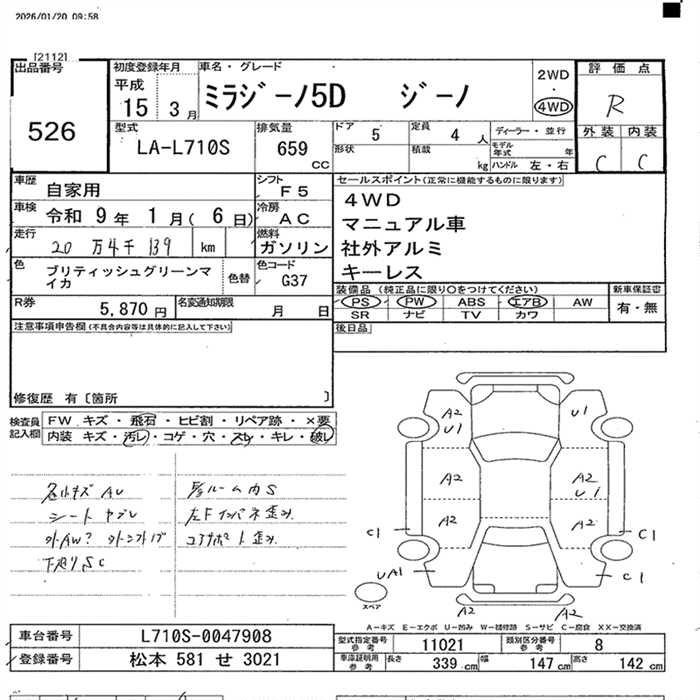 2026/01/20 09:58
[2112]
出品番号
526
初度登録年月
平成
15 3月
車名・グレード
ミラジーノ5D ジーノ
2WD
・
4WD
評価点
R
外装 内装
C C
型式
LA-L710S
排気量
659
CC
ドア
5
定員
4人
形状
積載
kg
ディーラー・並行
モデル年式 年
ハンドル 左・右
車歴
自家用
シフト
F5
車検
令和 9年 1月( 6日)
冷房
AC
走行
20万4千139 km
燃料
ガソリン
色
ブリティッシュグリーンマイカ
色替
色コード
G37
R券
5,870円
名変通知期限
月 日
セールスポイント(正常に機能するものに限ります)
4WD
マニュアル車
社外アルミ
キーレス
装備品(純正品に限り○をつけてください)
PS PW ABS エアB AW
SR ナビ TV カワ
新車保証書
有・無
注意事項申告欄(不具合内容等は具体的に記入して下さい)
後日品
修復歴 有〔箇所 〕
検査員記入欄
FW キズ・飛石・ヒビ割・リペア跡・×要
内装 キズ・汚レ・コゲ・穴・スレ・キレ・破レ
シート ヤブレ
外AW?
下廻りSC
ルーム内S
左Fインパネ歪み
コアサポート歪み
A2
U1
U1
A2
A2
U1
A2
A2
C1
C1
UA1
C1
スペア
A2
A2
A-キズ E-エクボ U-凹み W-補修跡 S-サビ C-腐食 XX-交換済
車台番号
L710S-0047908
登録番号
松本 581 せ 3021
型式指定番号
参考
11021
類別区分番号
参考
8
車庫証明用
参考
長さ
339 cm
幅
147 cm
高さ
142 cm